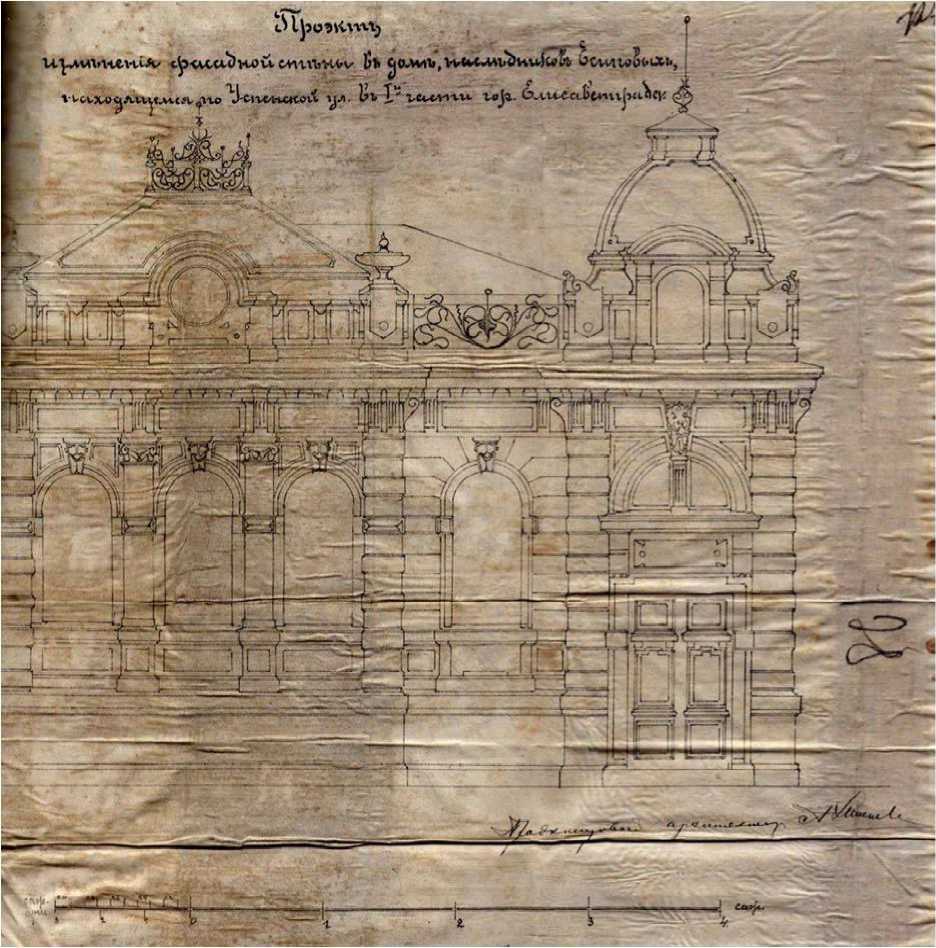 Проэктъ
измѣненія фасадной стѣны въ домѣ, наслѣдниковъ Есиповыхъ,
находящемся по Успенской ул. въ Iй части гор. Елисаветградѣ.
архитекторъ
саж.
0 1 2 3 4 саж.